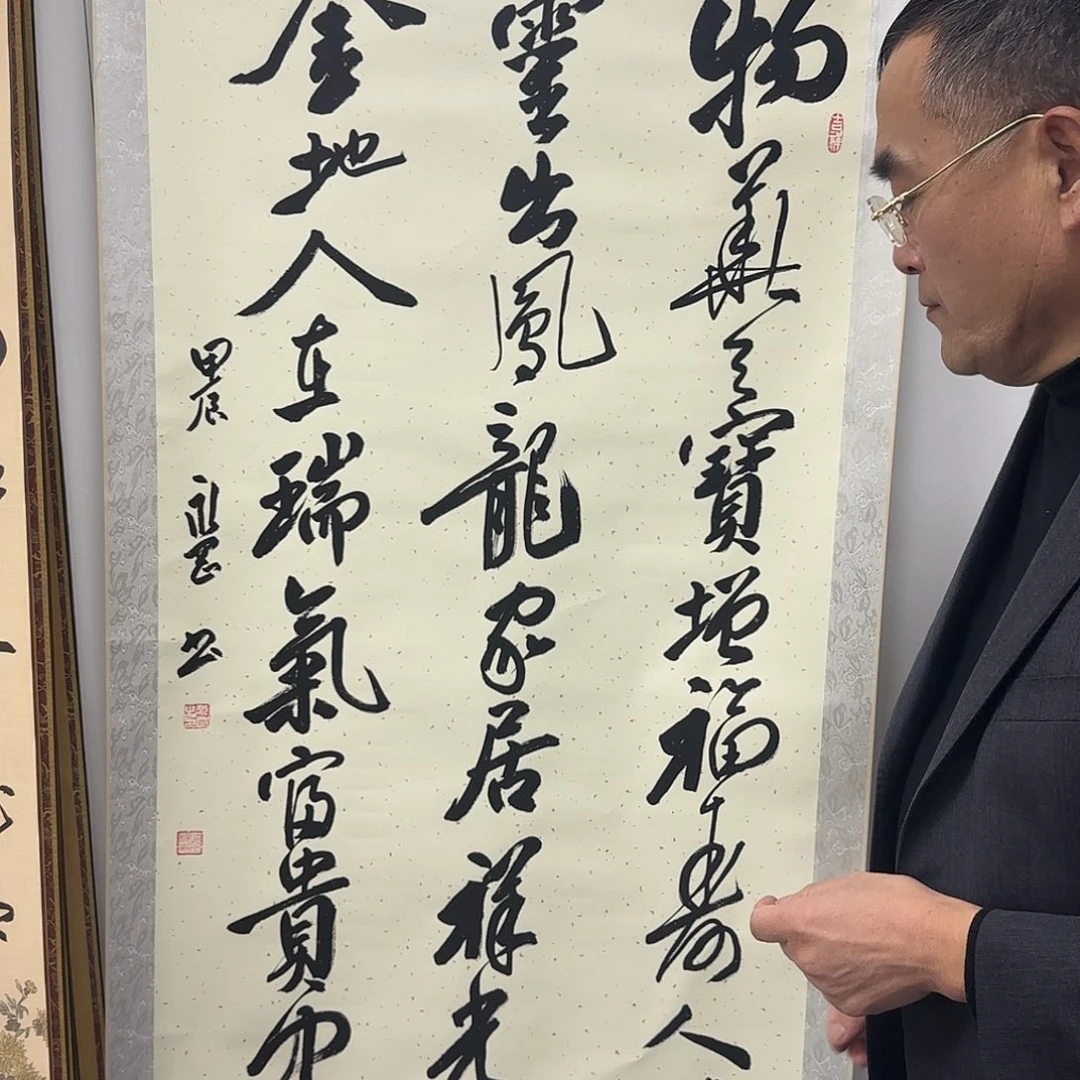 物華天寶增福壽人
靈出鳳龍家居祥光
金地人在瑞氣富貴中
甲辰 書